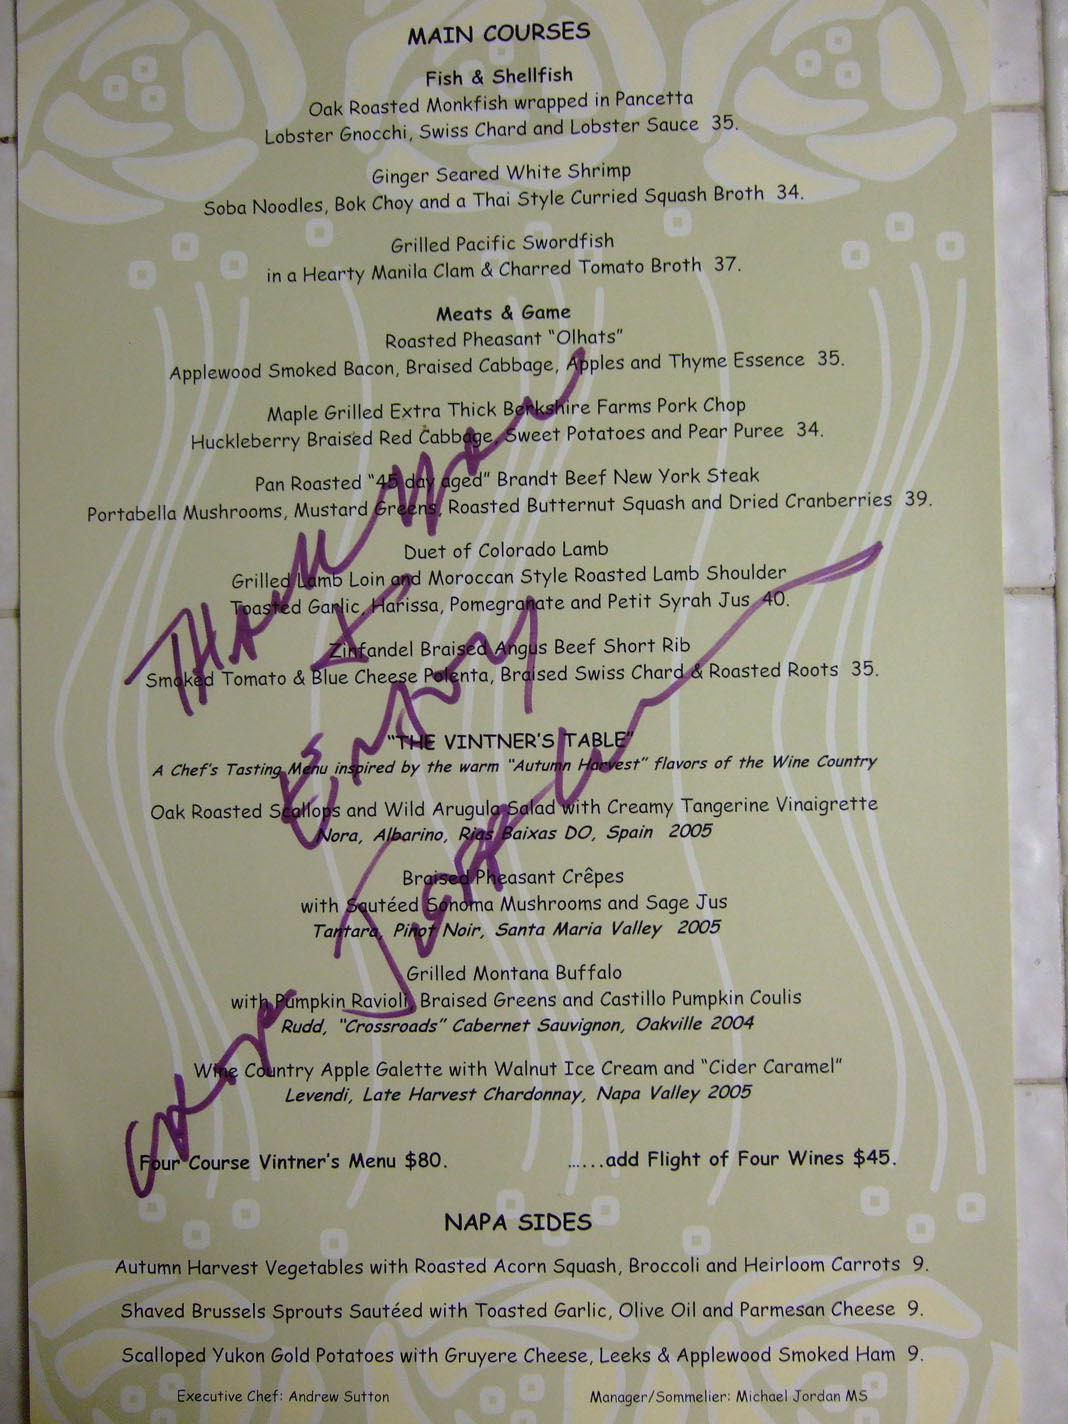 MAIN COURSES
Fish & Shellfish
Oak Roasted Monkfish wrapped in Pancetta
Lobster Gnocchi, Swiss Chard and Lobster Sauce 35.
Ginger Seared White Shrimp
Soba Noodles, Bok Choy and a Thai Style Curried Squash Broth 34.
Grilled Pacific Swordfish
in a Hearty Manila Clam & Charred Tomato Broth 37.
Meats & Game
Roasted Pheasant “Olhats”
Applewood Smoked Bacon, Braised Cabbage, Apples and Thyme Essence 35.
Maple Grilled Extra Thick Berkshire Farms Pork Chop
Huckleberry Braised Red Cabbage, Sweet Potatoes and Pear Puree 34.
Pan Roasted “45 day aged” Brandt Beef New York Steak
Portabella Mushrooms, Mustard Greens, Roasted Butternut Squash and Dried Cranberries 39.
Duet of Colorado Lamb
Grilled Lamb Loin and Moroccan Style Roasted Lamb Shoulder
Toasted Garlic, Harissa, Pomegranate and Petit Syrah Jus 40.
Zinfandel Braised Angus Beef Short Rib
Smoked Tomato & Blue Cheese Polenta, Braised Swiss Chard & Roasted Roots 35.
“THE VINTNER'S TABLE”
A Chef's Tasting Menu inspired by the warm “Autumn Harvest” flavors of the Wine Country
Oak Roasted Scallops and Wild Arugula Salad with Creamy Tangerine Vinaigrette
Nora, Albarino, Rias Baixas DO, Spain 2005
Braised Pheasant Crêpes
with Sautéed Sonoma Mushrooms and Sage Jus
Tantara, Pinot Noir, Santa Maria Valley 2005
Grilled Montana Buffalo
with Pumpkin Ravioli, Braised Greens and Castillo Pumpkin Coulis
Rudd, “Crossroads” Cabernet Sauvignon, Oakville 2004
Wine Country Apple Galette with Walnut Ice Cream and “Cider Caramel”
Levendi, Late Harvest Chardonnay, Napa Valley 2005
Four Course Vintner's Menu $80. ......add Flight of Four Wines $45.
NAPA SIDES
Autumn Harvest Vegetables with Roasted Acorn Squash, Broccoli and Heirloom Carrots 9.
Shaved Brussels Sprouts Sautéed with Toasted Garlic, Olive Oil and Parmesan Cheese 9.
Scalloped Yukon Gold Potatoes with Gruyere Cheese, Leeks & Applewood Smoked Ham 9.
Executive Chef: Andrew Sutton Manager/Sommelier: Michael Jordan MS
THANK YOU
ENJOY